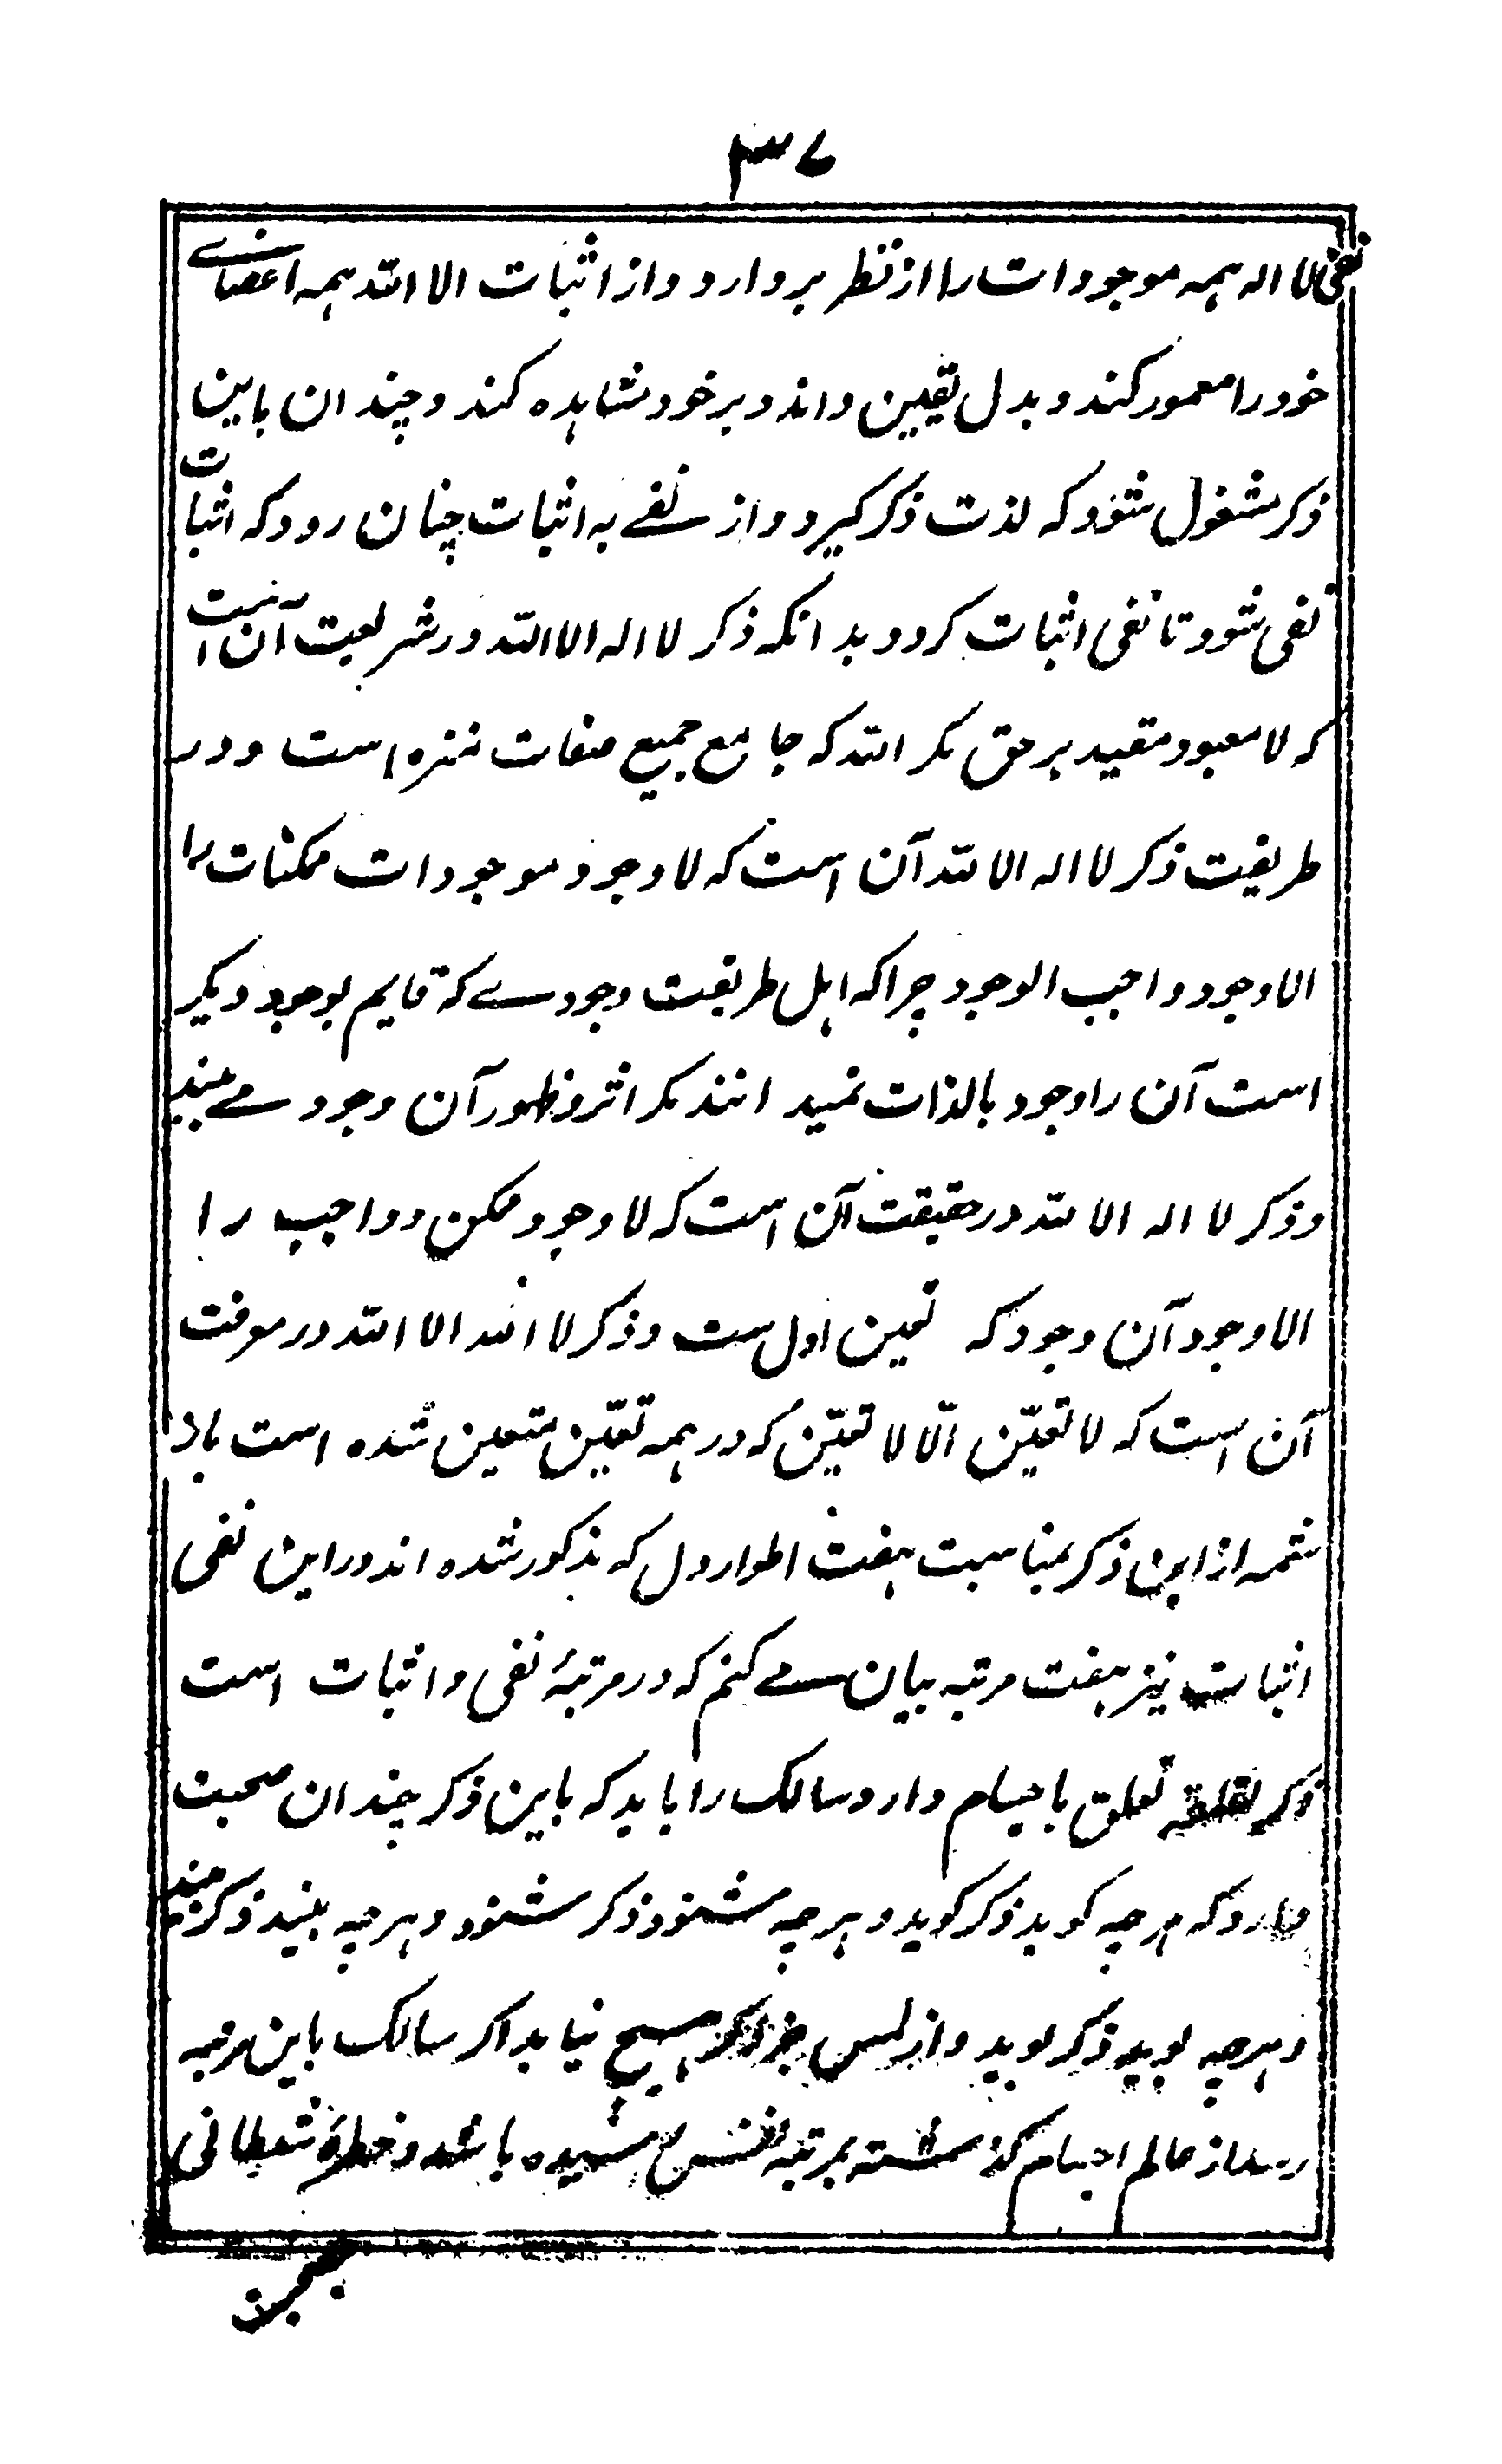 ۳۷
نفی لا اله همه موجودات را از نظر بردارد و از اثبات الا الله همه اعضاے
خود را معمور کند و بدل یقین داند و بر خود مشاهده کند و چندان باین
ذکر مشغول شود که لذت ذکر گیرد و از نفے به اثبات چنان رود که اثبات
نفی شود تا نفی اثبات گردد بدانکه ذکر لا اله الا الله در شریعت آن است
که لا معبود مقید برحق مگر الله که جامع جمیع صفات منزه است و در
طریقت ذکر لا اله الا لله آن است که لا وجود موجودات ممکنات را
الا وجود واجب الوجود چرا که اهل طریقت وجودے که قایم بوجود دیگر
است آن را وجود بالذات نمیدانند مگر اثر و ظهور آن وجود مے بینند
و ذکر لا اله الا لله در حقیقت آن است که لا وجود ممکن و واجب را
الا وجود آن وجود که تعین اول ست و ذکر لا الله الا الله در معرفت
آن است که لا تعیّن الّا لا تعیّن که در همه تعیّن متعین شده است باز
شمه از این ذکر بمناسبت هفت اطوار دل که مذکور شده اند در این نفی
اثبات نیز هفت مرتبه بیان مے کنم که در مرتبهٔ نفی و اثبات است
ذکر لقلقه تعلق باجسام دارد سالک را باید که باین ذکر چندان صحبت
دارد که هرچه گوید ذکر گوید و هرچه شنود ذکر شنود و هرچه بیند ذکر بیند
و هرچه بوید ذکر بوید و از لمس جز ذکر هیچ نیابد اگر سالک باین مرتبه
رسد از عالم اجسام گذشته بمرتبه نفس رسیده باشد و خطرهٔ شیطانی